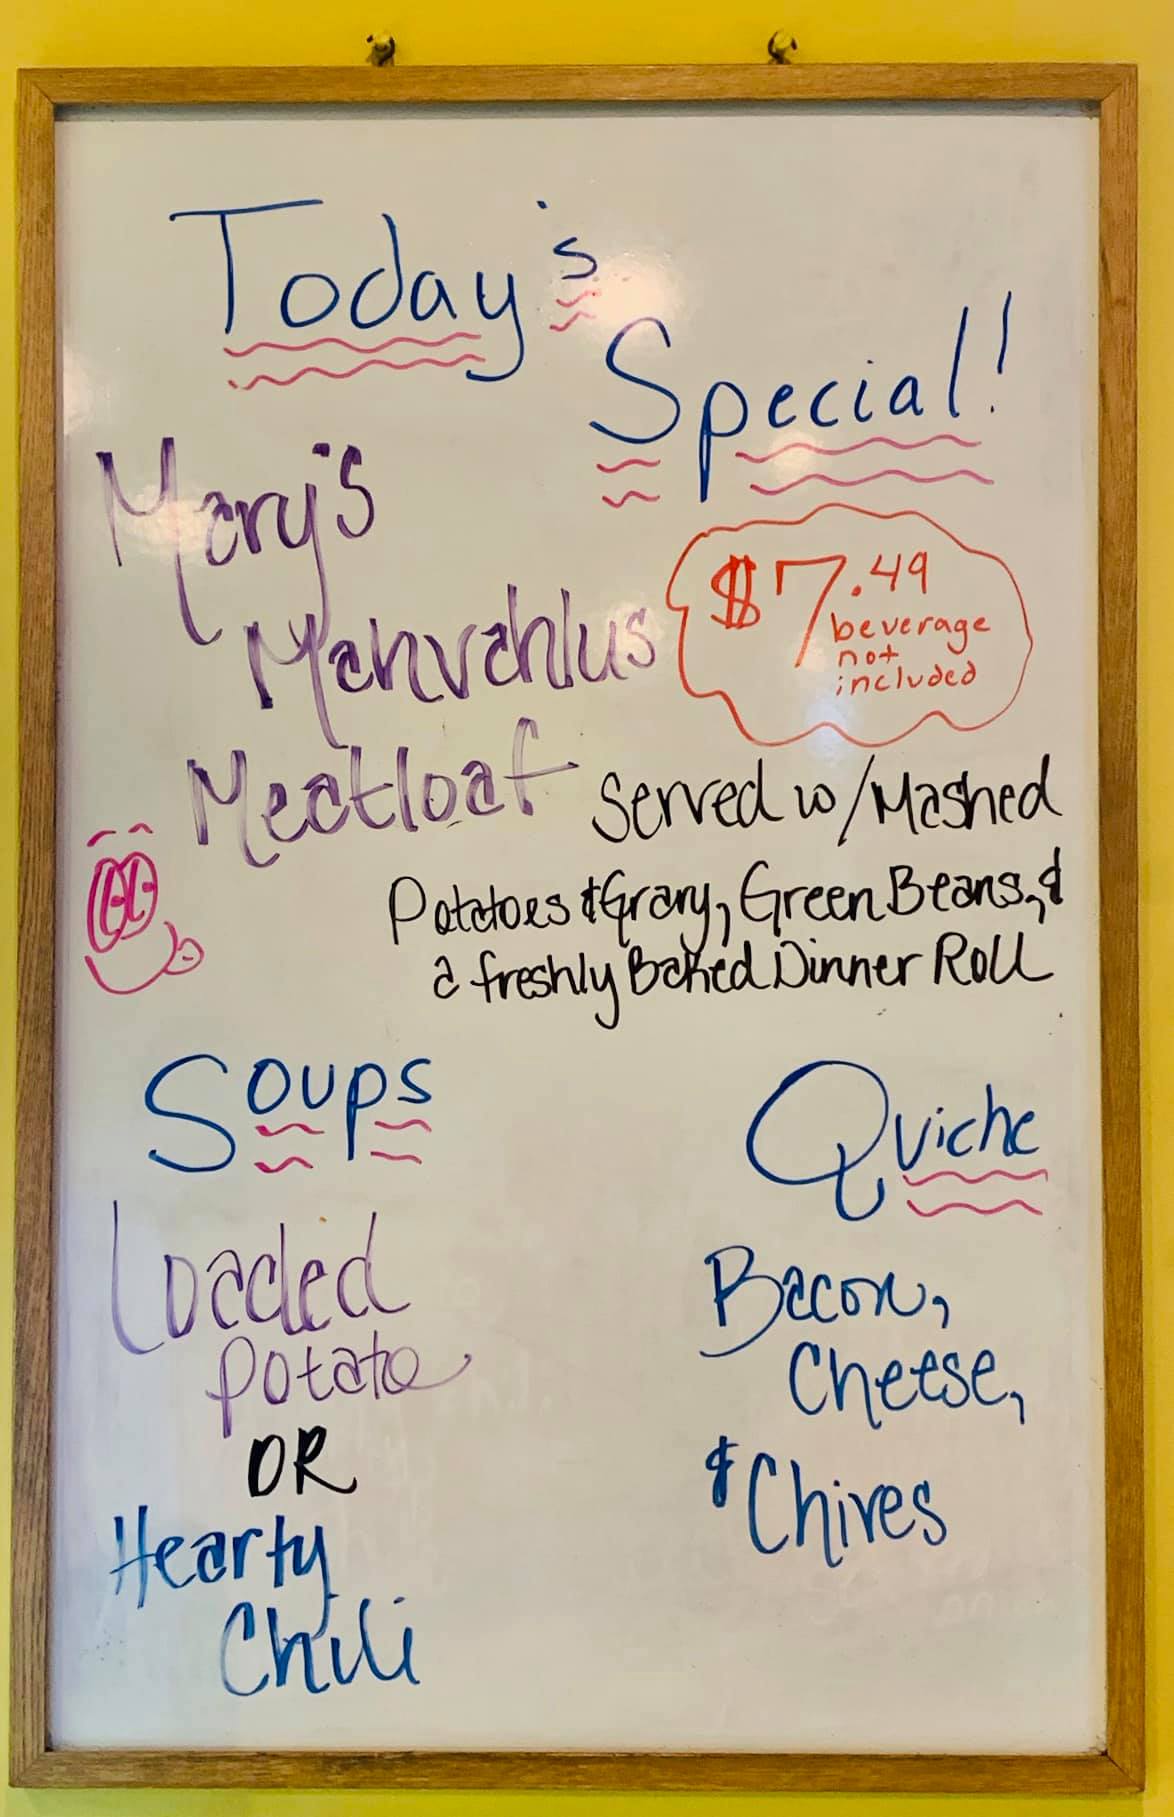 Today's
Special!
Mary's
Mahvahlus
Meatloaf
$7.49
beverage
not
included
Served w/Mashed
Potatoes & Gravy, Green Beans, &
a freshly Baked Dinner Roll
Soups
Loaded
Potato
OR
Hearty
Chili
Quiche
Bacon,
Cheese,
& Chives